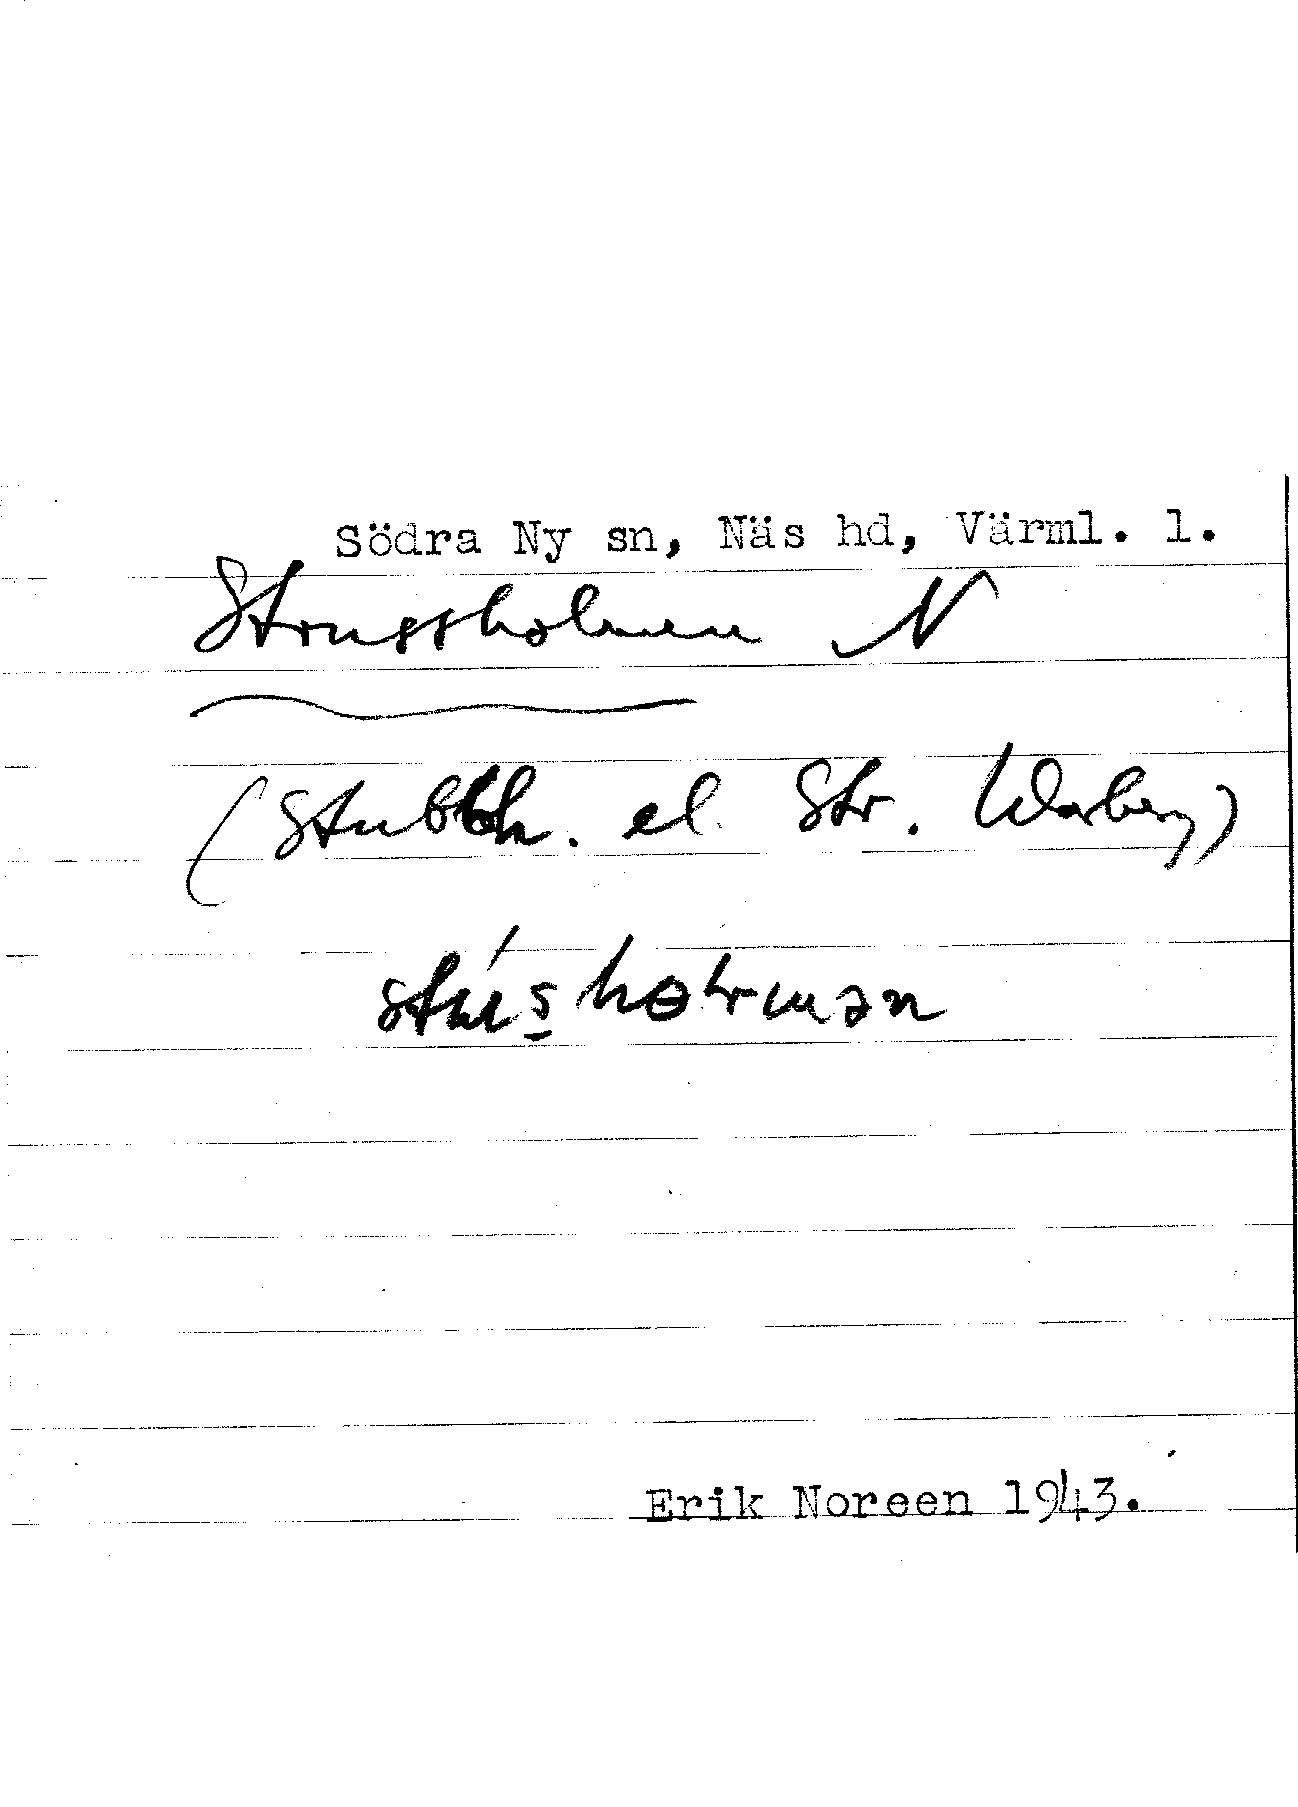 Södra Ny sn, Näs hd, Värml. l.
Strussholmen N
(Stubbh. el. Str. Warberg)
Erik Noreen 1943.